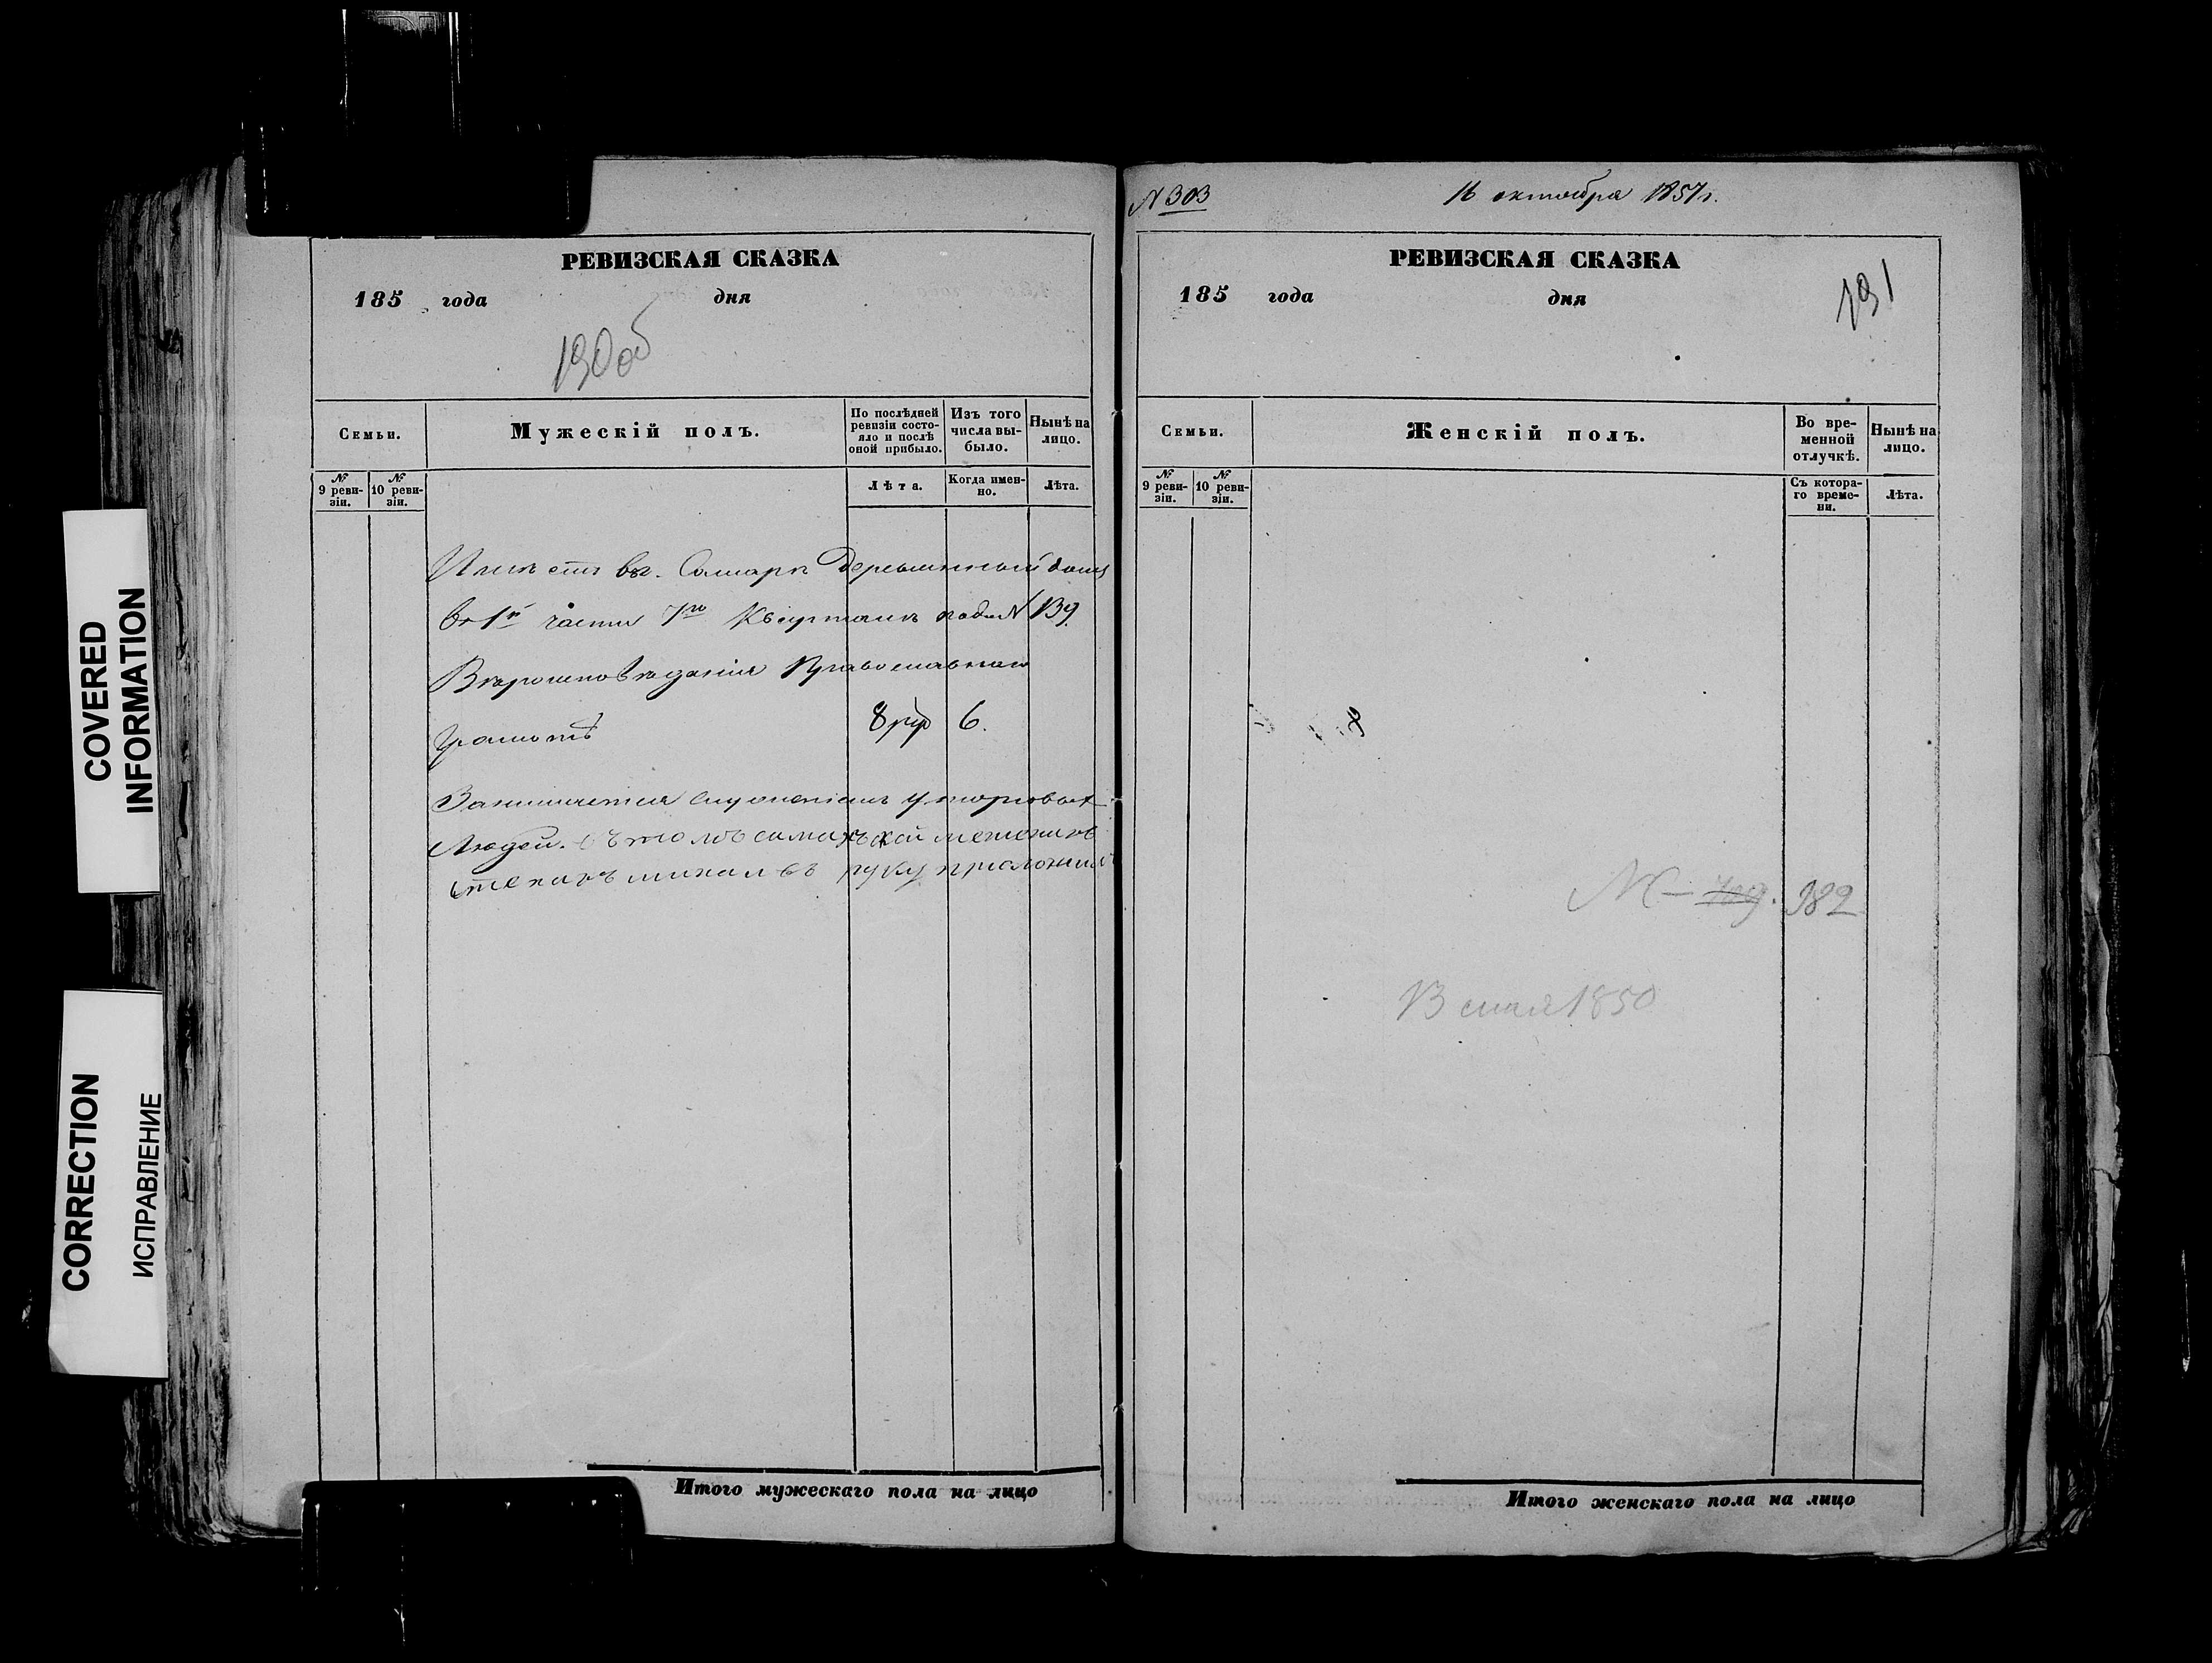 COVERED
INFORMATION
CORRECTION
ИСПРАВЛЕНИЕ
РЕВИЗСКАЯ СКАЗКА
185 года дня
190 об
Семьи.
Мужескій полъ.
По послѣдней ревизіи состояло и послѣ оной прибыло.
Изъ того числа выбыло.
Нынѣ на лицо.
№ 9 ревизіи.
№ 10 ревизіи.
Лѣта.
Когда именно.
Лѣта.
Имѣетъ въ г. Самарѣ деревянный домъ
въ 1й части 7го Квартала подъ N 139
Вѣроисповѣданія Православнаго
Грамотѣ
8 6.
Занимается служеніемъ у торговыхъ
Людей. въ томъ
руку приложилъ
Итого мужескаго пола на лицо
N 303
16 октября 1857 г.
РЕВИЗСКАЯ СКАЗКА
185 года дня
191
Семьи.
Женскій полъ.
Во временной отлучкѣ.
Нынѣ на лицо.
№ 9 ревизіи.
№ 10 ревизіи.
Съ котораго времени.
Лѣта.
8
982
13 мая 1850
Итого женскаго пола на лицо